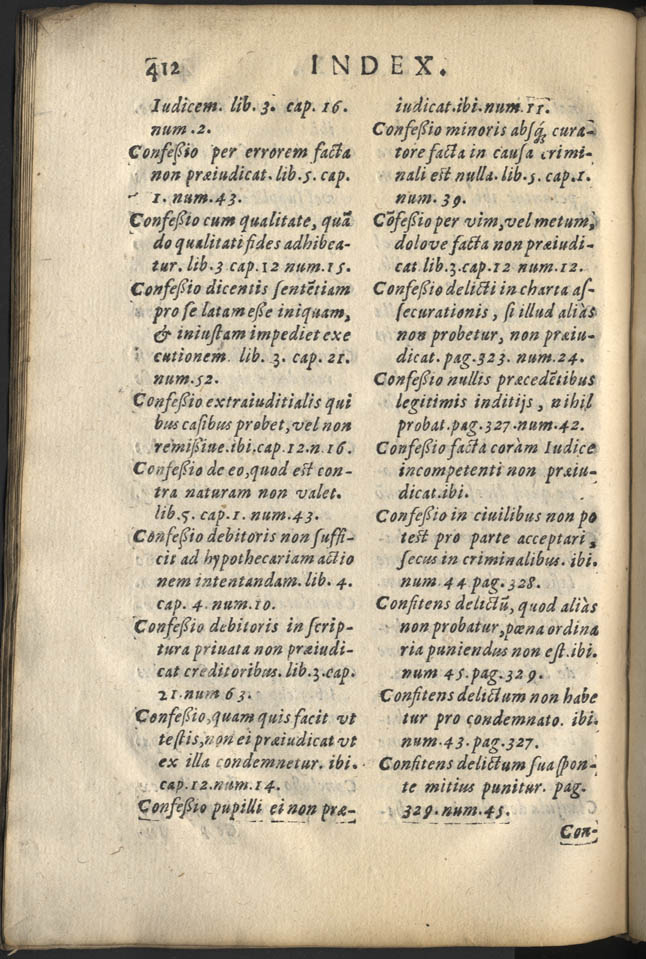 412 INDEX.
Iudicem. lib. 3. cap. 16.
num. 2.
Confeßio per errorem facta
non præiudicat. lib. 5. cap.
1. num. 43.
Confeßio cum qualitate, quã
do qualitati fides adhibea-
tur. lib. 3 cap. 12 num. 15.
Confeßio dicentis sentẽtiam
pro se latam eße iniquam,
& iniustam impediet exe
cutionem lib. 3. cap. 21.
num. 52.
Confeßio extraiuditialis qui
bus casibus probet, vel non
remißiue. ibi. cap. 12. n. 16.
Confeßio de eo, quod est con-
tra naturam non valet.
lib. 5. cap. 1. num. 43.
Confeßio debitoris non suffi-
cit ad hypothecariam actio
nem intentandam. lib. 4.
cap. 4. num. 10.
Confeßio debitoris in scrip-
tura priuata non præiudi-
cat creditoribus. lib. 3. cap.
21. num 63.
Confeßio, quam quis facit vt
testis, non ei præiudicat vt
ex illa condemnetur. ibi.
cap. 12. num. 14.
Confeßio pupilli ei non præ-
iudicat. ibi. num. 11.
Confeßio minoris absq; cura-
tore facta in causa crimi-
nali est nulla. lib. 5. cap. 1.
num. 39.
Cõfeßio per vim, vel metum,
dolove facta non præiudi-
cat lib. 3. cap. 12 num. 12.
Confeßio delicti in charta as-
securationis, si illud aliàs
non probetur, non præiu-
dicat. pag. 323. num. 24.
Confeßio nullis præcedẽtibus
legitimis inditijs, nihil
probat. pag. 327. num. 42.
Confeßio facta coràm Iudice
incompetenti non præiu-
dicat. ibi.
Confeßio in ciuilibus non po
test pro parte acceptari,
secus in criminalibus. ibi.
num 44 pag. 328.
Confitens delictũ, quod aliàs
non probatur, pœna ordina
ria puniendus non est. ibi.
num 45. pag. 329.
Confitens delictum non habe
tur pro condemnato. ibi.
num. 43. pag. 327.
Confitens delictum sua spon-
te mitius punitur. pag.
329. num. 45.
Con-